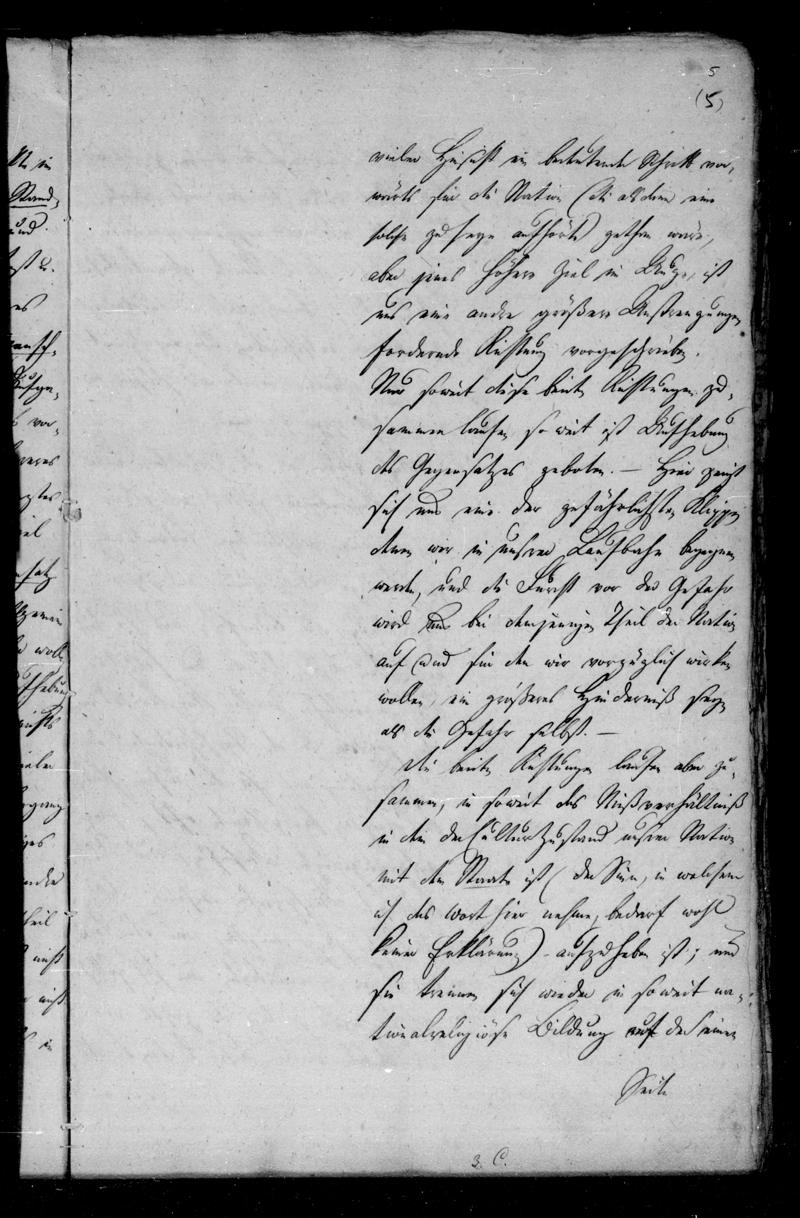 5
(5)
vieler Hinsicht ein bedeutender Schritt vor-
wärts für die Nation (die alsdann eine
solche zu seyn aufhörte) gethan wäre,
aber jenes höhere Ziel im Auge, ist
uns eine andre größere Anstrengungen
fordernde Richtung vorgeschrieben.
Nur soweit diese beiden Richtungen zu-
sammen laufen so weit ist Aufhebung
des Gegensatzes geboten. — Hier zeigt
sich nun eine der gefährlichsten Klippen
denen wir in unsrer Laufbahn begegnen
werden, und die Furcht vor der Gefahr
wird bei demjenigen Theil der Nation
auf und für den wir vorzüglich wirken
wollen, ein größeres Hinderniß seyn
als die Gefahr selbst. —
Die beiden Richtungen laufen aber zu-
sammen, in soweit das Mißverhältniß
in dem der Culturzustand unsrer Nation
mit dem Staate ist (der Sinn, in welchem
ich das Wort hier nehme, bedarf wohl
keiner Erklärung) aufzuheben ist; und
sie trennen sich wieder in soweit na-
tionalreligiöse Bildung auf der einen
Seite
3. C.